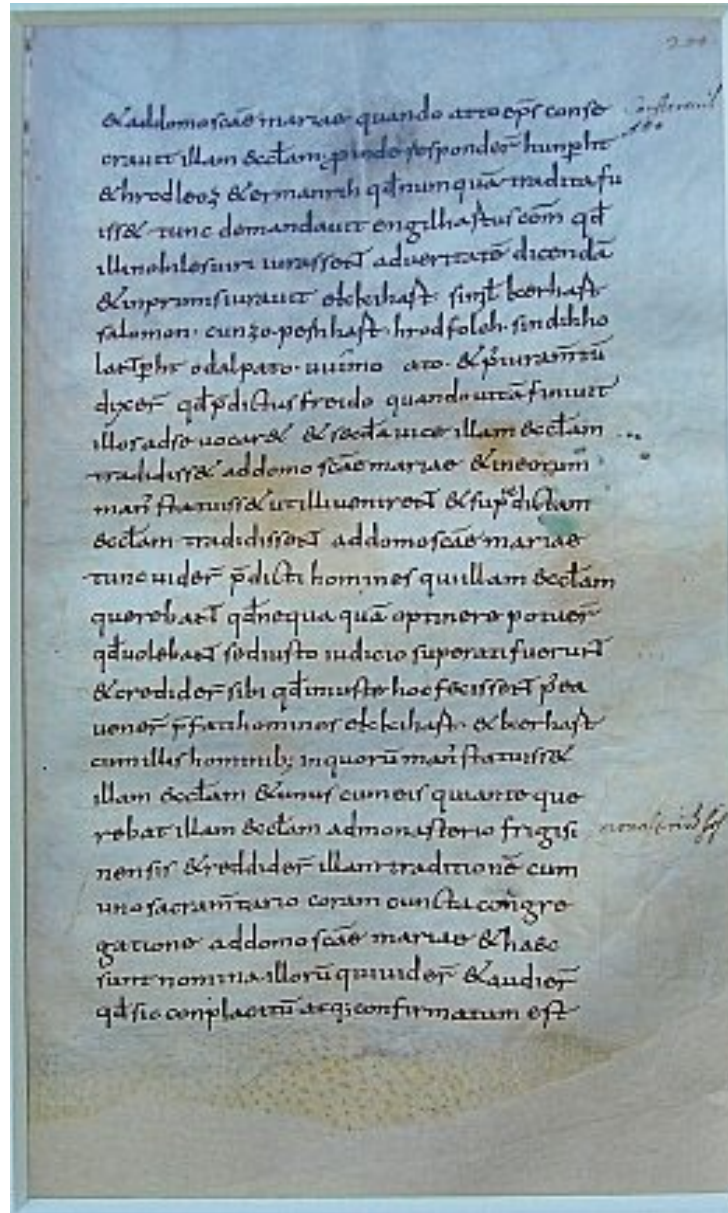 &addomo scae mariae quando atto ep̄s conse
crauit illam &ccłam; proinde responder̄ hunp̄ht
& hrodleoz & ermanrih qd̄ numquā tradita fu
iss& tunc demandauit engilhastus com̄ qd̄
illi nobiles uiri iurassent aduertitatē dicendā
& inprimis iurauit ekkihast · simł kerhast
salomon · cunzo · hrodfolch · sindihho
lantp̄ht odalpato · uuimo ato · & p̄ iuram̄tū
dixer̄ qd̄ p̄dictus freido quando uitā finiuit
illos adse uocar& & secd̄a uice illam &ccłam
tradidiss& addomo scae mariae & ineorum
man̄ statuiss& ut illi uenirent & sup̄dictam
&ccłam tradidissent addomo scae mariae
tunc uider̄ p̄dicti homines qui illam &ccłam
querebant qd̄ nequaquā optinere potuer̄
qd̄ uolebant sed iusto iudicio superati fuerunt
& credider̄ sibi qd̄ iniuste hoc fecissent p̄ea
uener̄ p̄fati homines ekkihast · & kerhast
cum illis hominib; inquorū man̄ statuiss&
illam &ccłam & unus cum eis qui ante que
rebat illam &ccłam ad monasterio frigisi
nensis & reddider̄ illam traditionē cum
uno sacram̄tario coram cuncta congre
gatione addomo scae mariae & haec
sunt nomina illorū qui uider̄ & audier̄
qd̄ sic conplacitū atq; confirmatum est